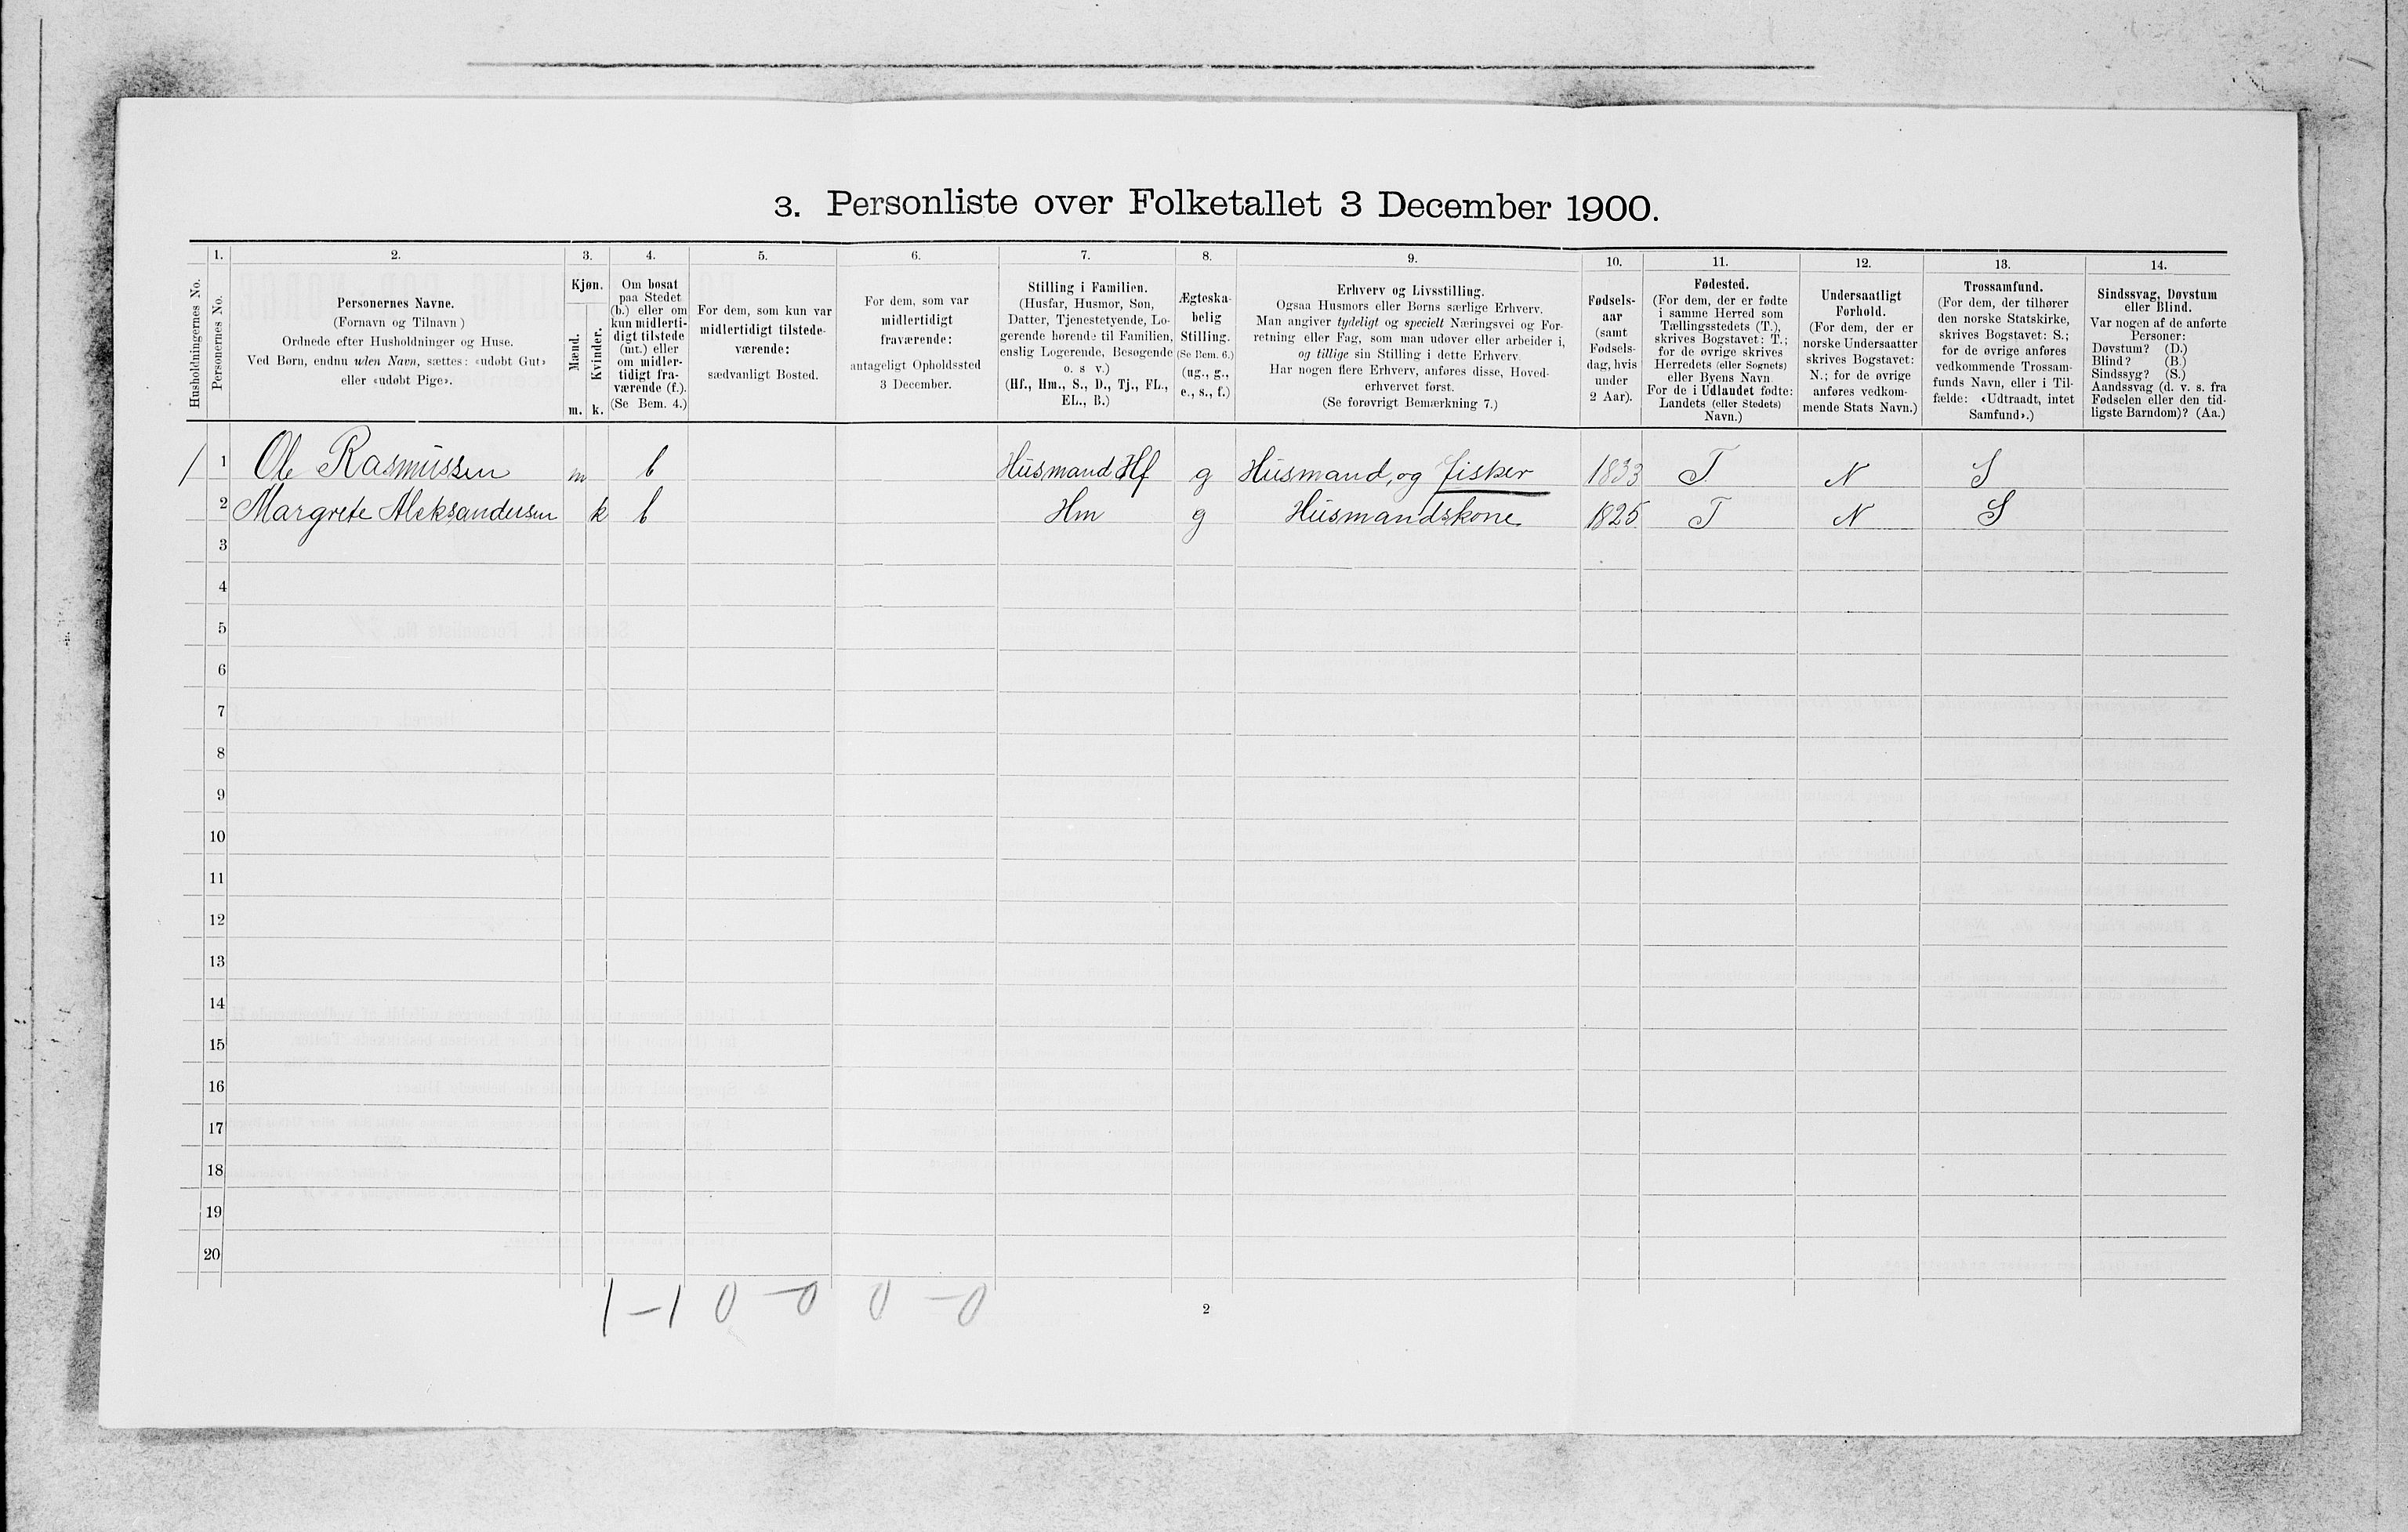 3. Personliste over Folketallet 3 December 1900.
1. 2. 3. 4. 5. 6. 7. 8. 9. 10. 11. 12. 13. 14.
Husholdningernes No.
Personernes No.
Personernes Navne.
(Fornavn og Tilnavn )
Ordnede efter Husholdninger og Huse.
Ved Børn, endnu uden Navn, sættes: «udøbt Gut»
eller «udøbt Pige».
Kjøn.
Mænd.
Kvinder.
m. k.
Om bosat
paa Stedet
(b.) eller om
kun midlerti-
digt tilstede
(mt.) eller
om midler-
tidigt fra-
værende (f.).
(Se Bem. 4.)
For dem, som kun var
midlertidigt tilstede-
værende:
sædvanligt Bosted.
For dem, som var
midlertidigt
fraværende:
antageligt Opholdssted
3 December.
Stilling i Familien.
(Husfar, Husmor, Søn,
Datter, Tjenestetyende, Lo-
gerende hørende til Familien,
enslig Logerende, Besøgende
o. s v.)
(Hf., Hm., S., D., Tj., FL.,
EL., B.)
Ægteska-
belig
Stilling.
(Se Bem. 6.)
(ug., g.,
e., s., f.)
Erhverv og Livsstilling.
Ogsaa Husmors eller Børns særlige Erhverv.
Man angiver tydeligt og specielt Næringsvei og For-
retning eller Fag, som man udøver eller arbeider i,
og tillige sin Stilling i dette Erhverv.
Har nogen flere Erhverv, anføres disse, Hoved-
erhvervet først.
(Se forøvrigt Bemærkning 7.)
Fødsels-
aar
(samt
Fødsels-
dag, hvis
under
2 Aar).
Fødested.
(For dem, der er fødte
i samme Herred som
Tællingsstedets (T.),
skrives Bogstavet: T.;
for de øvrige skrives
Herredets (eller Sognets)
eller Byens Navn.
For de i Udlandet fødte:
Landets (eller Stedets)
Navn.)
Undersaatligt
Forhold.
(For dem, der er
norske Undersaatter
skrives Bogstavet:
N.; for de øvrige
anføres vedkom-
mende Stats Navn.)
Trossamfund.
(For dem, der tilhører
den norske Statskirke,
skrives Bogstavet: S.;
for de øvrige anføres
vedkommende Trossam-
funds Navn, eller i Til-
fælde: «Udtraadt, intet
Samfund».)
Sindssvag, Døvstum
eller Blind.
Var nogen af de anførte
Personer:
Døvstum? (D.)
Blind? (B.)
Sindssyg? (S.)
Aandssvag (d. v. s. fra
Fødselen eller den tid-
ligste Barndom)? (Aa.)
1 1 Ole Rasmussen m b Husmand Hf g Husmand, og fisker 1833 T N S
2 Margrete Aleksandersen k b Hm g Husmandskone 1825 T N S
3
4
5
6
7
8
9
10
11
12
13
14
15
16
17
18
19
20
1 - 1 0 - 0 0 - 0
2